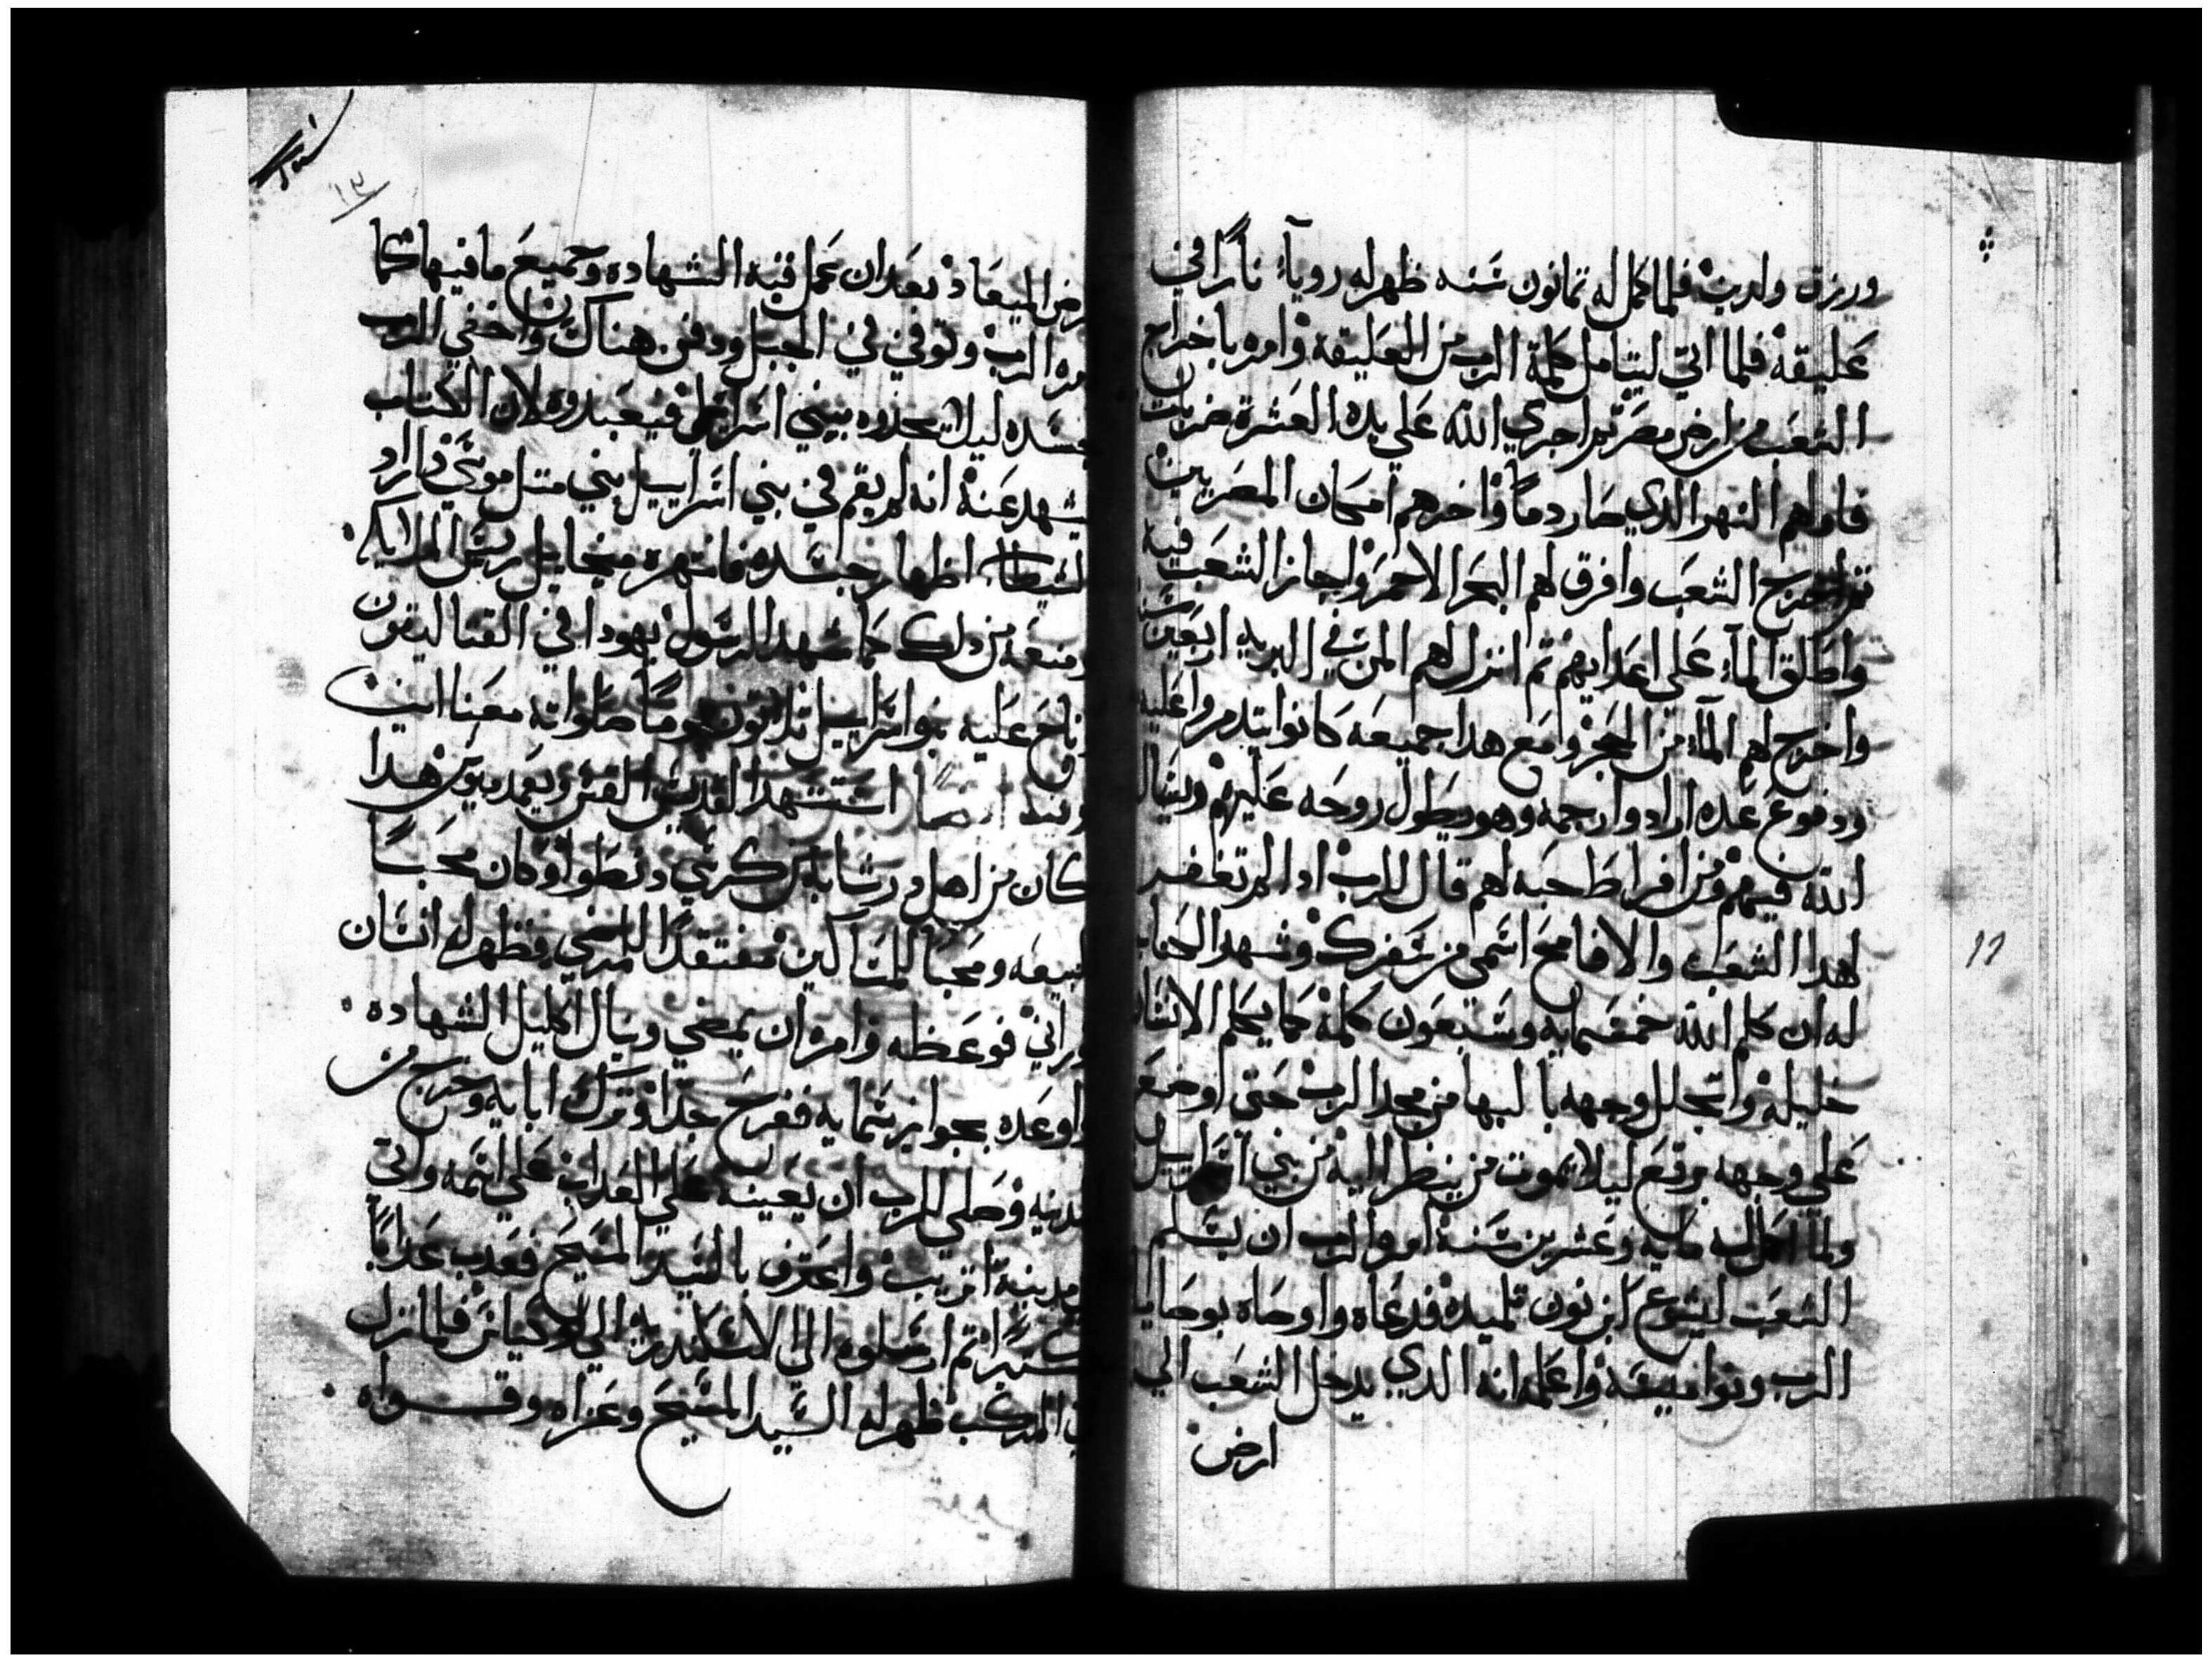 ورزق ولدين فلما كمل له تمانون سنه ظهر له روياء نارا في
عليقه فلما اتي ليتامل كلمة الرب من العليقه وامره باخراج
الشعب من ارض مصر تم اجري الله علي يده العشرة ضربات
فاولهم النهر الدي صار دما واخرهم المصريين
تم اخرج الشعب وافرق لهم البحر الاحمر واجاز الشعب فيه
واطلق الماء علي اعدايهم تم انزل لهم المن في البريه اربعين سنه
واخرج لهم الماء من الحجر ومع هدا جميعه كانوا يتدمروا عليه
ودفوع عده ارادوا رجمه وهو يطول روحه عليهم ويسال
الله فيهم ومن افراط حبه لهم قال للرب ادا لم تغفر
لهدا الشعب والا فامح اسمي من سفرك وشهد الكتاب
له ان كلم الله خمسمايه وسبعون كلمة كما يكلم الانسان
خليله واتجلل وجهه بالبها من مجد الرب حتي اوضع
علي وجهه برقع ليلا يموت من ينظر اليه من بني اسراييل
ولما اكمل مايه وعشرين سنة امره الرب ان يسلم
الشعب ليشوع ابن نون تلميده فدعاه واوصاه بوصايا
الرب ونواميسه واعلمه انه الدي يدخل الشعب الي
ارض
١٣
ارض الميعاد بعد ان عمل قبة الشهاده وجميع ما فيها كما
امره الرب وتوفي في الجبل ودفن هناك واخفي الرب
جسده ليلا يجدوه بني اسراييل فيعبدوه لان الكتاب
يشهد عنه انه لم يقم في بني اسراييل نبي متل موسي واراد
الشيطان اظهار جسده فانتهره ميخاييل رييس الملايكه
ومنعه من دلك كما شهد الرسول يهودا في القتاليقون
وناح عليه بنوا اسراييل تلاتون يوما صلواته معنا امين
وفيه ايضا استشهد القديس القس ويعمديوس هدا
كان من اهل درشابه من كرسي دنطوا وكان محبا
للبيعه ومحبا للمساكين مفتقدا للمرضي فظهر له انسان
نوراني فوعظه وامره ان يمضي وينال اكليل الشهاده
واوعده بجوايز سمايه ففرح جدا وترك ابايه وخرج من
مدينه وصلي للرب ان يعينه علي العداب علي اسمه واتي
مدينة اتريب واعترف بالسيد المسيح فعدب عدابا
كتيرا تم ارسلوه الي الاسكندريه الي فلما نزل
في المركب ظهر له السيد المسيح وعزاه وقواه